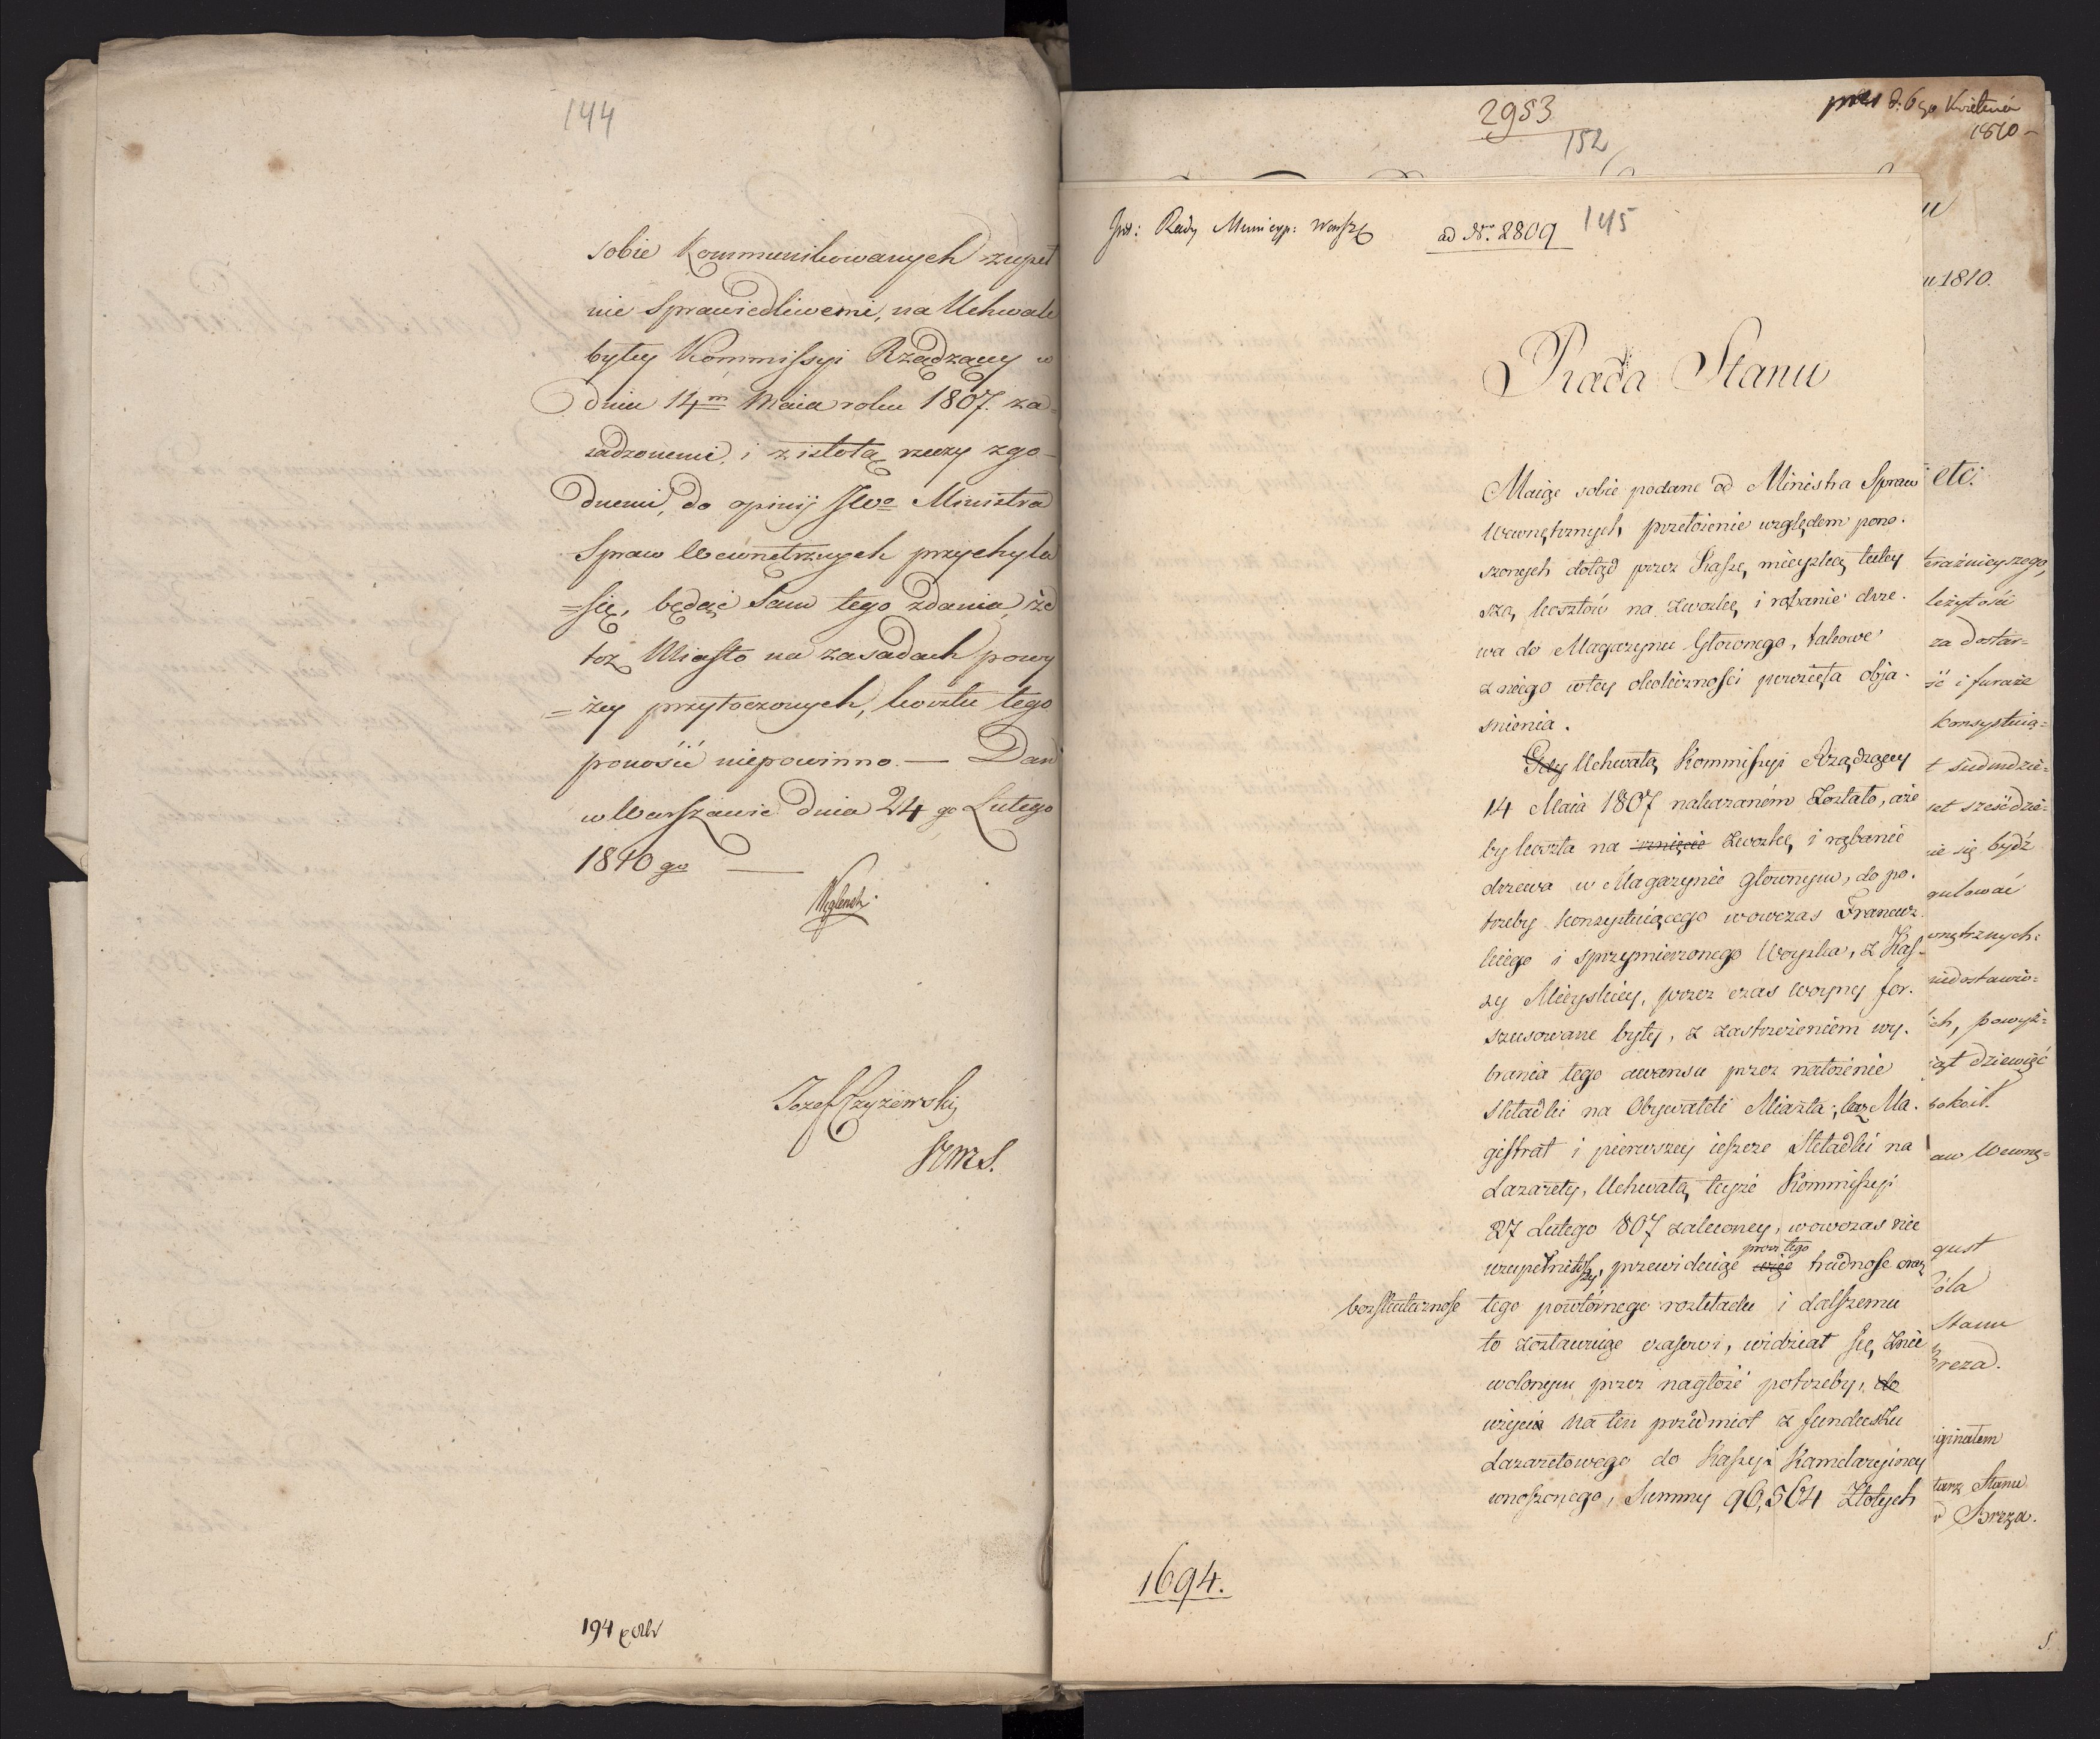 144
sobie kommunikowanych zupeł
nie sprawiedliwemi, na Uchwale
byłey Kommissyi Rządzącey w
dniu 14m Maia roku 1807. za=
sadzonemi, i z istotą rzeczy zgo-
dnemi, do opinij JWo Ministra
Spraw Wewnętrznych przychyla
=się, będąc sam tego zdania, że
toż Miasto na zasadach powy
=żey przytoczonych, kosztu tego
ponosić niepowinno. — Dan
w Warszawie dnia 24 go Lutego
1810 go —
Węglensk.
Jozef Czyżewski
194
2953
152
pres d. 6 go Kwietnia
1810 -
Jnt: Rady Municyp: Warsz
ad Nr. 2809
145
Rada Stanu
Maiąc sobie podane od Ministra Spraw
Wewnętrznych przełożenie względem pono-
szonych dotąd przez Kassę mieyską tutey
szą, kosztów na zwozkę i rąbanie drze-
wa do Magazynu Głównego, takowe
z niego w tey okoliczności powzięła obja-
snienia.
Gdy Uchwałą Kommissyi Rządzącey
14 Maia 1807 nakazaném zostało, aże
by koszta na rznięcie zwozkę, i rąbanie
drzewa w Magazynie głownym, do po-
trzeby konsystuiącego wowczas Francuz
kiego i sprzymierzonego Woyska, z Kas-
sy Mieyskiey, przez czas woyny for-
szusowane były, z zastrzeżeniem wy-
brania tego awansu przez nałożenie
składki na Obywateli Miasta; lecz Ma-
gistrat i pierwszey ieszcze składki na
Lazarety, Uchwałą teyże Kommissyi
27 Lutego 807 zaleconey, wowczas nie
przez tego
uzupełniwszy, przewiduiąc więc trudnosc oraz
bezskutecznosc tego powtórnego rozkładu i dalszemu
to zostawuiąc czasowi, widział się znie
wolonym przez nagłość potrzeby, do
użycia na ten przedmiot z funduszu
Lazaretowego do Kassy Kamelaryiney
wnoszonego, Summy 96,564 Złotych
1694.
u 1810.
etc:
teraźnieyszego,
leżytości
za dostar=
ść i furaże
konsystuią=
t siedmdzie=
set sześdzie=
ie się bydź
gulować
wnętrznych:
niedostawio=
ch, powyż=
iąt dziewięć
pokoił.
aw Wewnę=
gust
óla
Stanu
Breza.
iginałem
tarz Stanu
Breza.